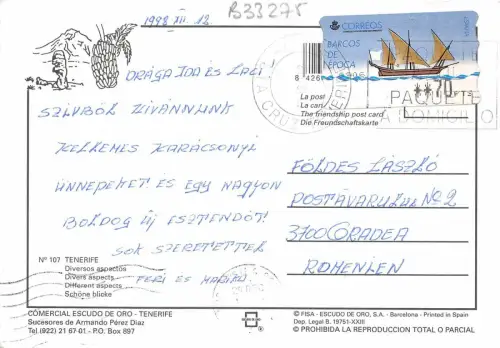 B33275
1998 XII. 12
DRÁGA IDA ÉS LACI!
SZIVBÖL KIVÁNNUNK
KELLEMES KARÁCSONYI
ÜNNEPEKET ÉS EGY NAGYON
BOLDOG ÚJ ESZTENDŐT!
SOK SZERETETTEL
FERI ÉS
Nº 107 TENERIFE
Diversos aspectos
Divers aspects
Different aspects
Schöne blicke
COMERCIAL ESCUDO DE ORO - TENERIFE
Sucesores de Armando Pérez Díaz
Tel (922) 21 67-01 - P.O. Box 897
CORREOS
BARCOS DE
EPOCA
8 426
**70 PTS
PAQUETE
A DOMICILIO
La post
La cart
The friendship post card
Die Freundschaftskarte
FÖLDES LÁSZLÓ
POSTĂVARULUI Nº 2
3700 ORADEA
ROMENIEN
© FISA - ESCUDO DE ORO, S.A. - Barcelona - Printed in Spain
Dep. Legal B. 19751-XXII
© PROHIBIDA LA REPRODUCCION TOTAL O PARCIAL